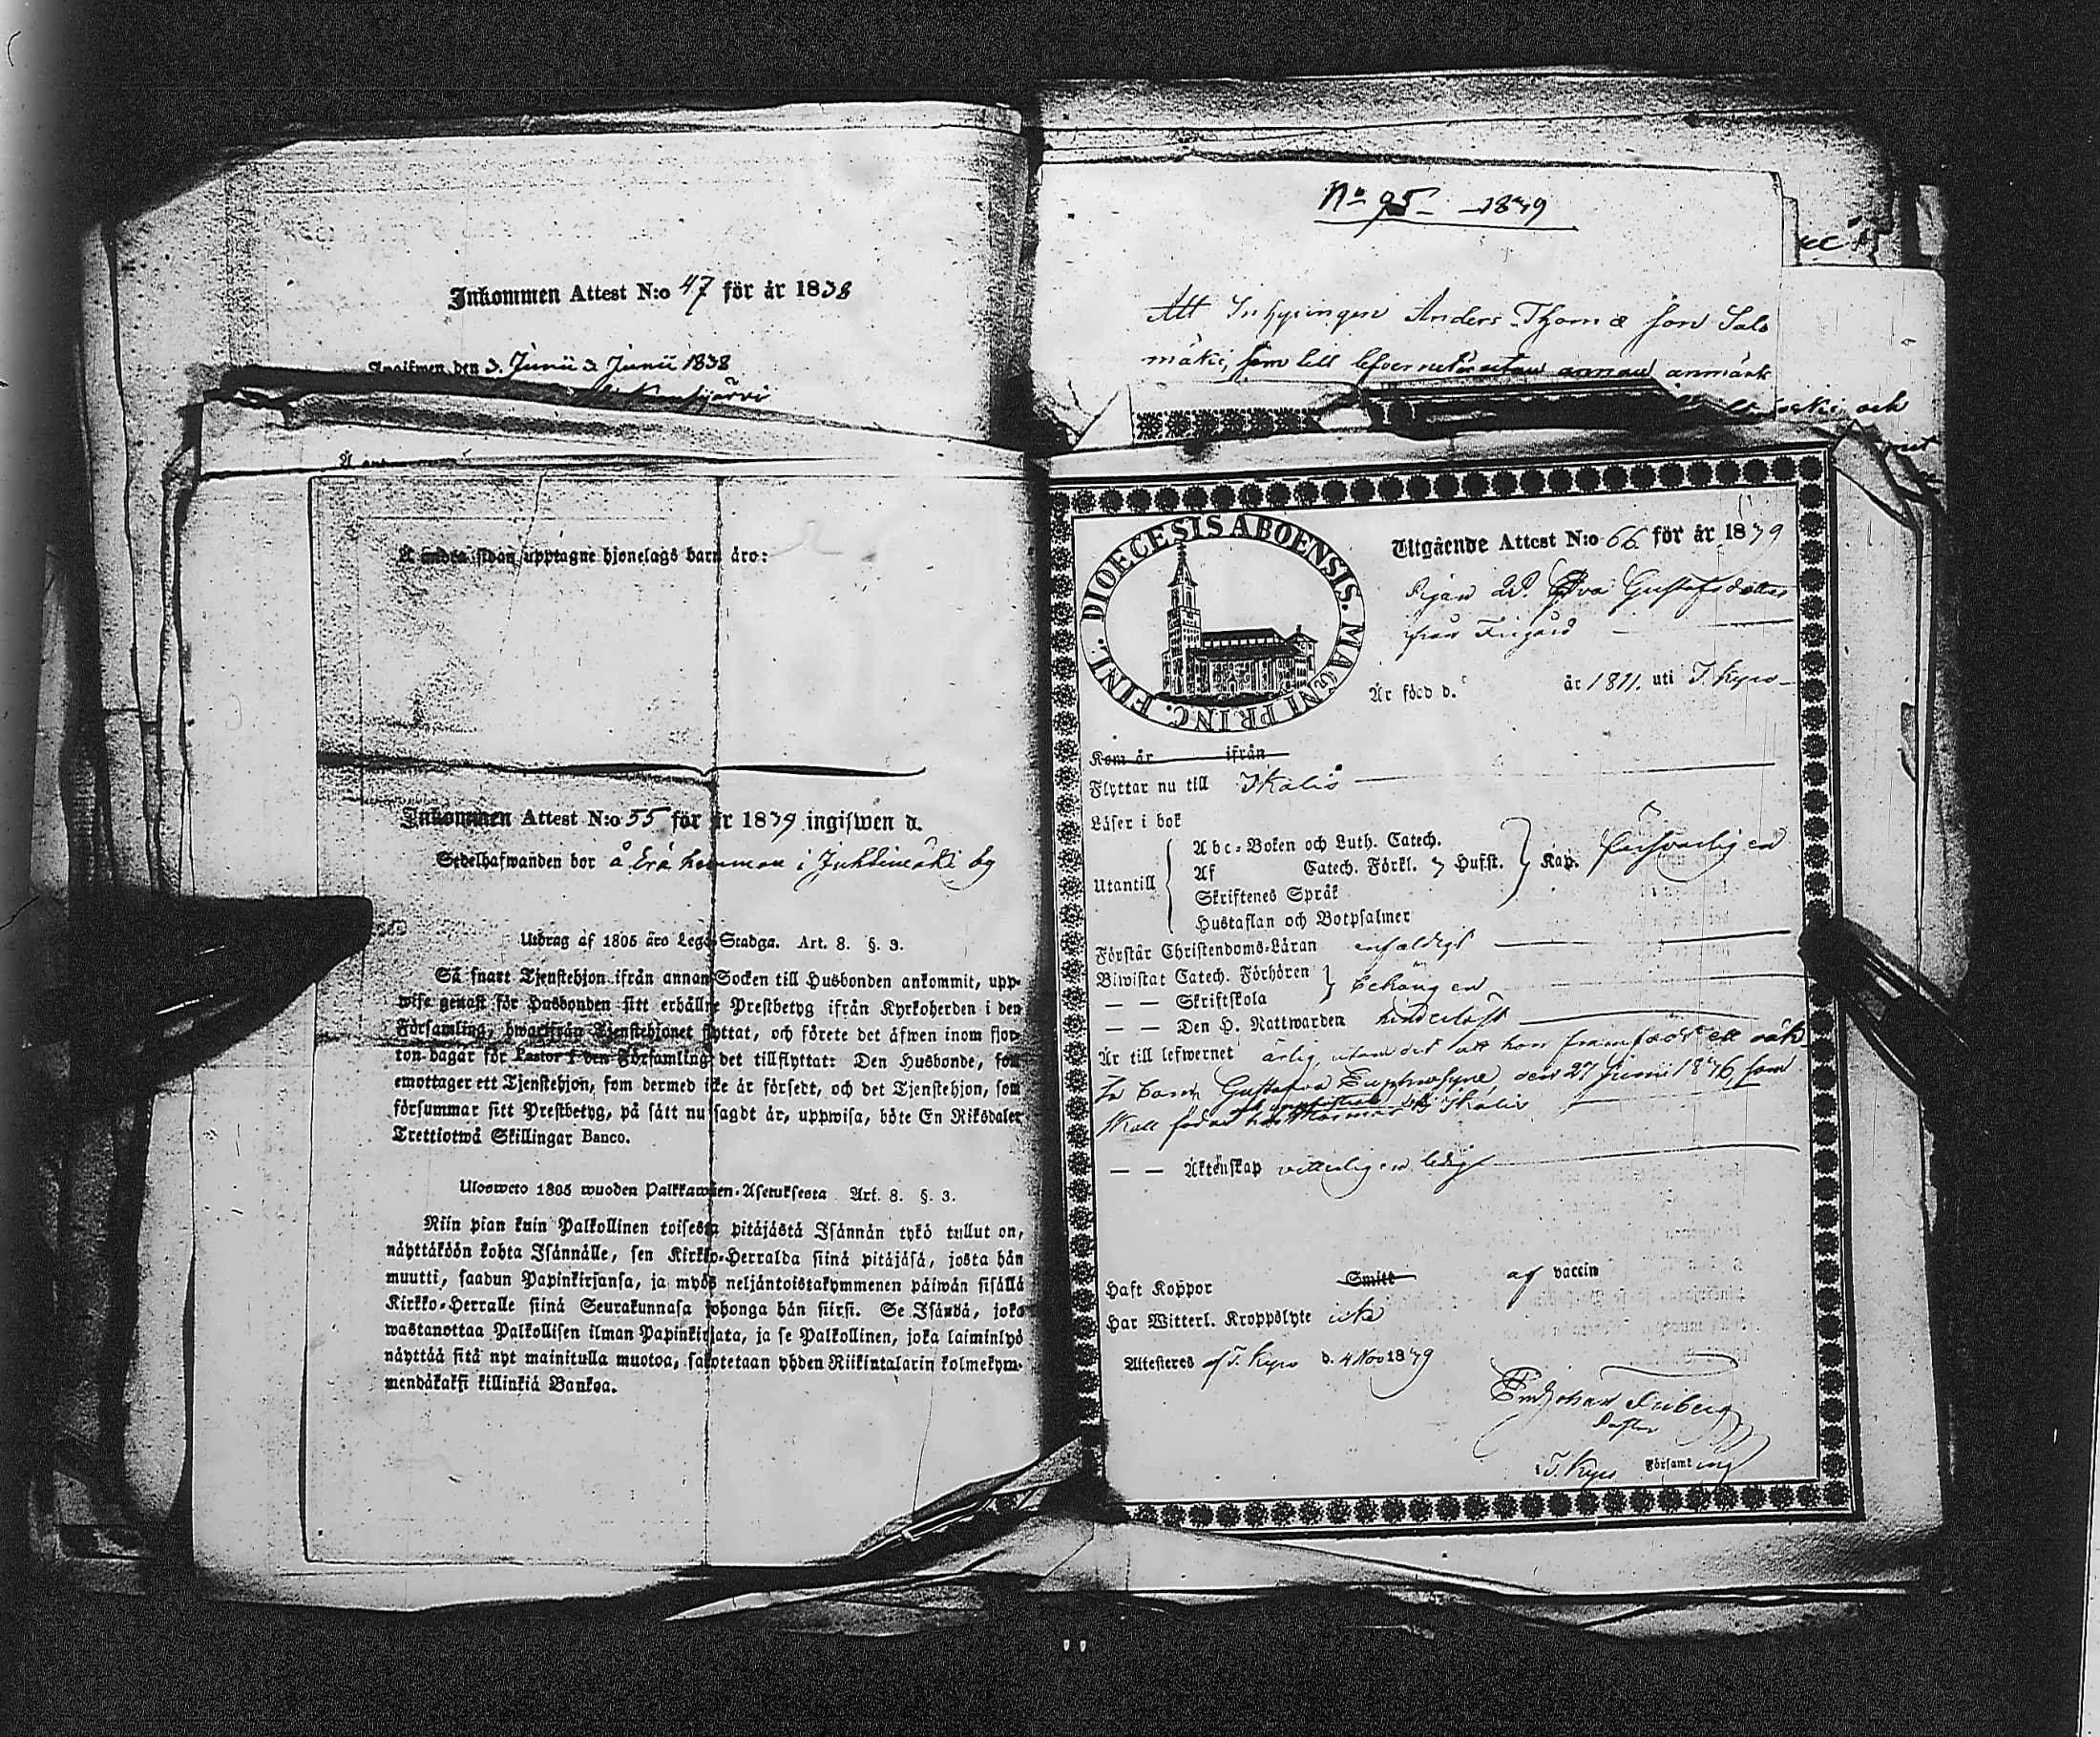 Inkommen Attest N:o 47 för år 1838
den 3. Junii 3 Junii 1838
Å andra sidan upptagne hjonelags barn äro:
Inkommen Attest N:o 55 för år 1879 ingifwen d.
Sedelhafwanden bor å Erä hemman i Juhtimäki by
Utdrag af 1805 åro Lego-Stadga. Art. 8. §. 3.
Så snart Tjenstehjon ifrån annan Socken till Husbonden ankommit, upp-
wise genast för Husbonden sitt erhållne Prestbetyg ifrån Kyrkoherden i den
Församling, hwarifrån Tjenstehjonet flyttat, och förete det äfwen inom fjor-
ton dagar för Pastor i den Församling det tillflyttat: Den Husbonde, som
emottager ett Tjenstehjon, som dermed icke är försedt, och det Tjenstehjon, som
försummar sitt Prestbetyg, på sätt nu sagdt är, uppwisa, böte En Riksdaler
Trettiotwå Skillingar Banco.
Ulosweto 1805 wuoden Palkkawäen-Asetuksesta Art. 8. §. 3.
Niin pian kuin Palkollinen toisesta pitäjästä Isännän tykö tullut on,
näyttäköön kohta Isännälle, sen Kirkko-Herralda siinä pitäjäsä, josta hän
muutti, saadun Papinkirjansa, ja myös neljäntoistakymmenen päiwän sisällä
Kirkko-Herralle siinä Seurakunnasa johonga hän siirsi. Se Isändä, joka
wastanottaa Palkollisen ilman Papinkirjata, ja se Palkollinen, joka laiminlyö
näyttää sitä nyt mainitulla muotoa, sakotetaan yhden Riikintalarin kolmekym-
mendäkaksi killinkiä Bankoa.
No 95 - 1879
Att Inhysingen Anders Thomæ son Salo
mäki, som till lefvernet utan annan anmärk
och
DIOECESIS ABOENSIS. MAGNI PRINC. FINL.
Utgående Attest N:o 66 för år 1879
Pigan Eva Gustafsdotter
från
Är född d. år 1811. uti T. Kyro
Kom år ifrån
Flyttar nu till Ikalis
Läser i bok
Abc-Boken och Luth. Catech.
Utantill Af Catech. Förkl. Husst. Kap. försvarligen
Skriftenes Språk
Hustaflan och Botpsalmer
Förstår Christendoms-Läran enfaldigt
Biwistat Catech. Förhören behörigen
— — Skriftskola
— — Den H. Nattwarden hinderlöst
Är till lefwernet ärlig, utom det att hon framfödt ett oäk
ta barn Gustafva Euphrosyne, den 27 Junii 1876, som
skall Ikalis
— — Äktenskap vitterligen ledig
Haft Koppor Smitt af vaccin
Har Witterl. Kroppslyte icke
Attesteres af T. Kyro d. 4 Nov 1879
Johan Friberg
Pastor
i T. Kyro Församling